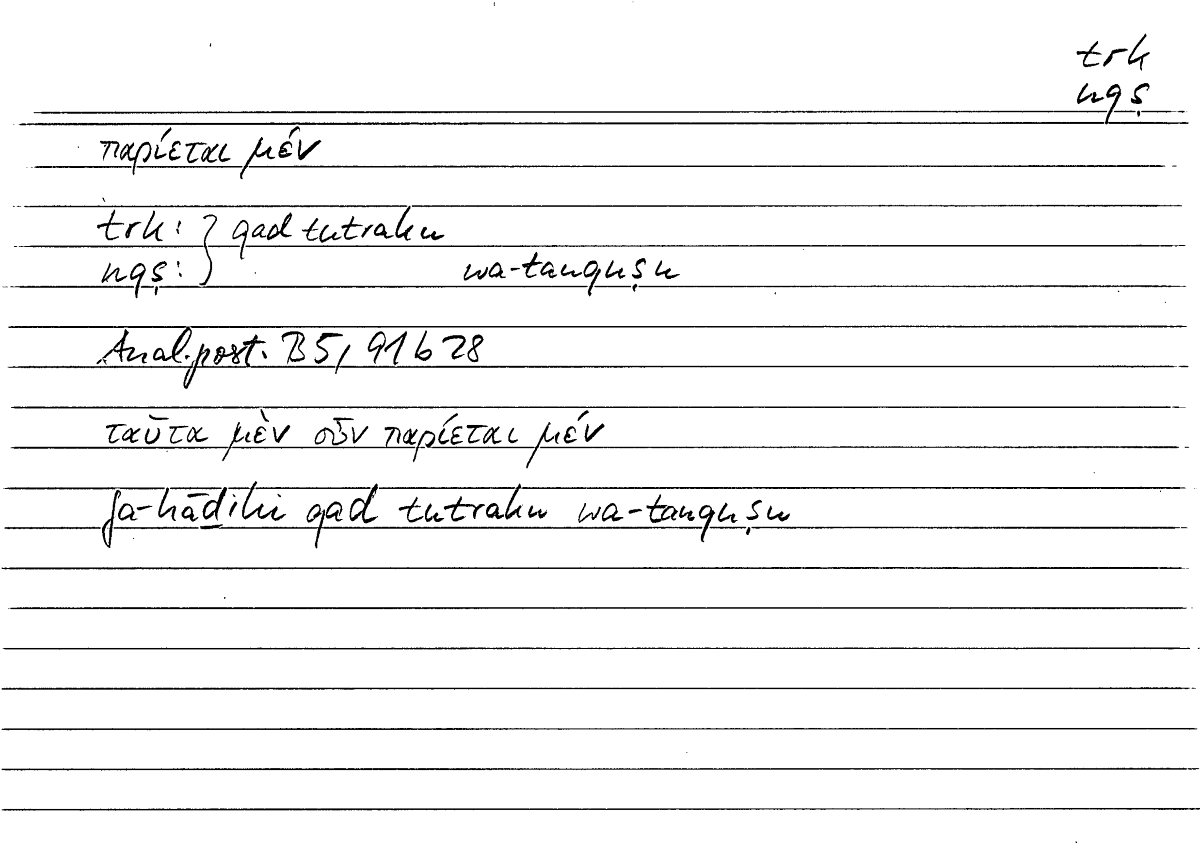 trk
nqṣ
παρίεται μέν
trk: } qad tutraku
nqṣ: } wa-tanquṣu
Anal.post. B5, 91b28
ταῦτα μὲν οὖν παρίεται μέν
fa-hāḏihi qad tutraku wa-tanquṣu